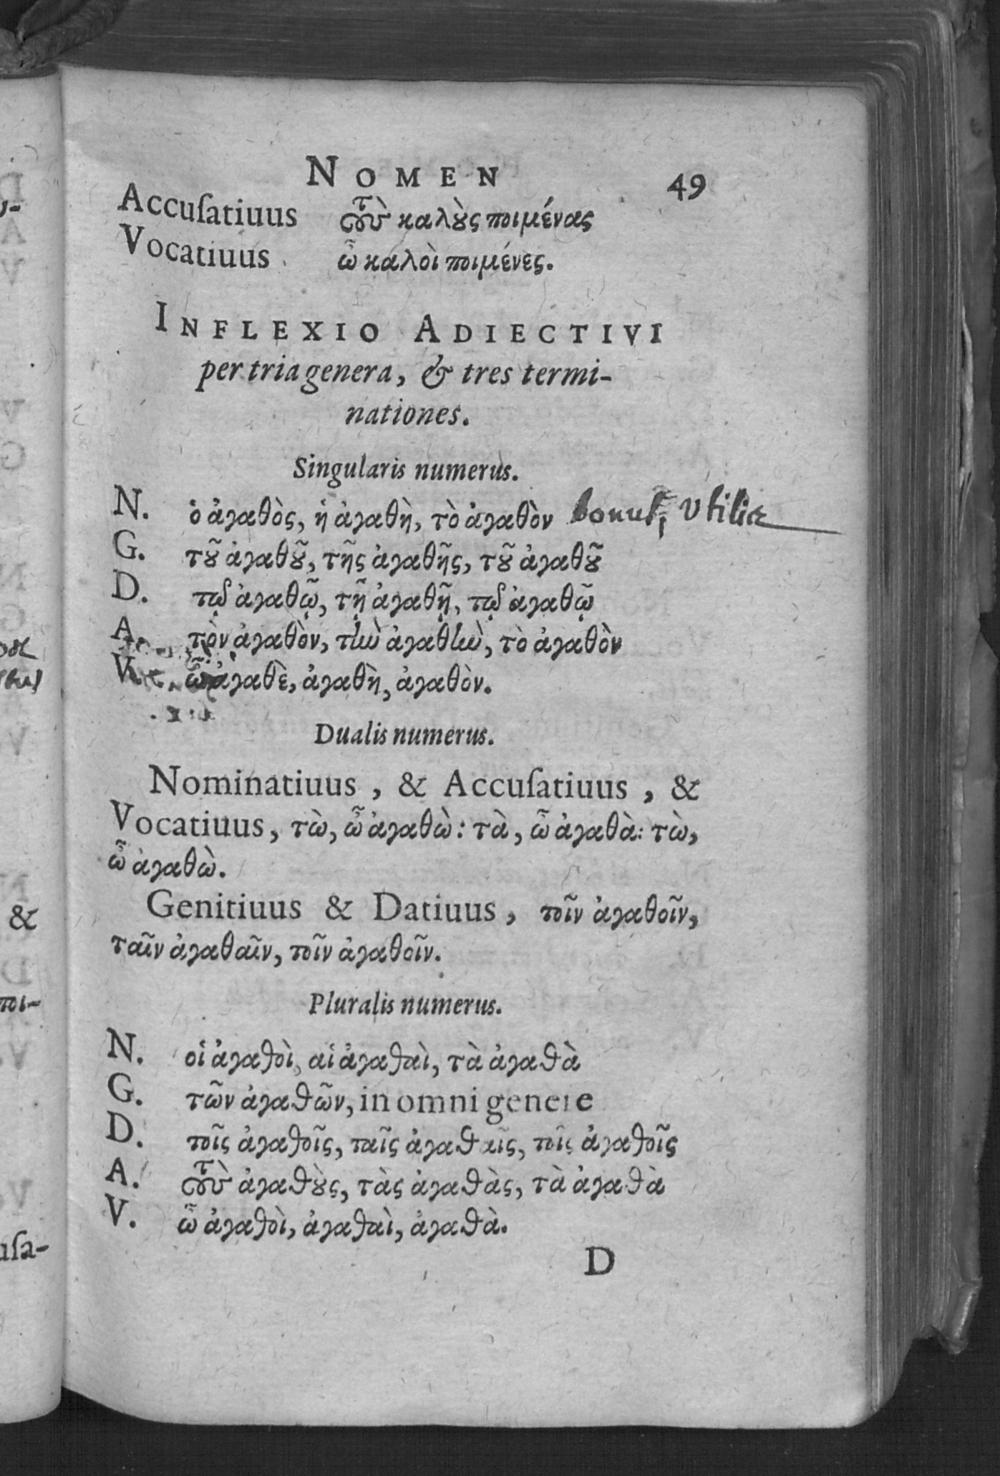 NOMEN 49
Accuſatiuus τοὺς καλοὺς ποιμένας
Vocatiuus ὦ καλοὶ ποιμένες.
INFLEXIO ADIECTIVI
per tria genera, & tres termi-
nationes.
Singularis numerus.
N. ὁ ἀγαθὸς, ἡ ἀγαθὴ, τὸ ἀγαθὸν bonus, Vtilis
G. τοῦ ἀγαθοῦ, τῆς ἀγαθῆς, τοῦ ἀγαθοῦ
D. τῷ ἀγαθῷ, τῇ ἀγαθῇ, τῷ ἀγαθῷ
A. τὸν ἀγαθὸν, τὴν ἀγαθὴν, τὸ ἀγαθὸν
V. ὦ ἀγαθὲ, ἀγαθὴ, ἀγαθὸν.
Dualis numerus.
Nominatiuus, & Accuſatiuus, &
Vocatiuus, τὼ, ὦ ἀγαθὼ: τὰ, ὦ ἀγαθὰ: τὼ,
ὦ ἀγαθὼ.
Genitiuus & Datiuus, τοῖν ἀγαθοῖν,
ταῖν ἀγαθαῖν, τοῖν ἀγαθοῖν.
Pluralis numerus.
N. οἱ ἀγαθοὶ, αἱ ἀγαθαὶ, τὰ ἀγαθὰ
G. τῶν ἀγαθῶν, in omni genere
D. τοῖς ἀγαθοῖς, ταῖς ἀγαθαῖς, τοῖς ἀγαθοῖς
A. τοὺς ἀγαθοὺς, τὰς ἀγαθὰς, τὰ ἀγαθὰ
V. ὦ ἀγαθοὶ, ἀγαθαὶ, ἀγαθὰ.
D